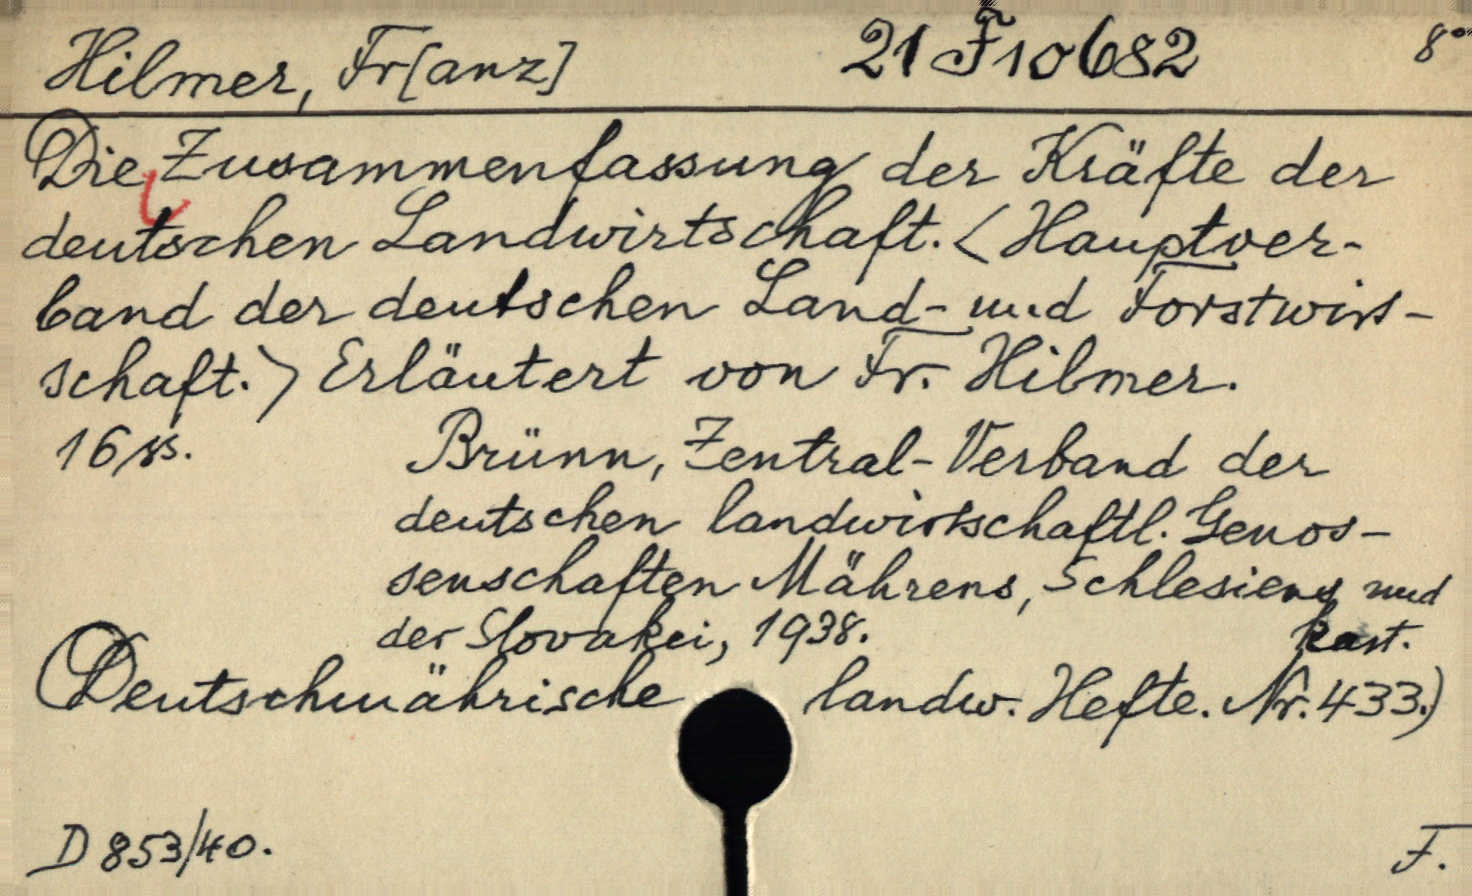 Hilmer, Fr[anz] 21 F 10682 8°
Die Zusammenfassung der Kräfte der
deutschen Landwirtschaft. < Hauptver-
band der deutschen Land- und Forstwirt-
schaft. > Erläutert von Fr. Hilmer.
16 ss. Brünn, Zentral-Verband der
deutschen landwirtschaftl. Genos-
senschaften Mährens, Schlesiens und
der Slovakei, 1938. kart.
Deutschmährische landw. Hefte. Nr. 433.)
D 853/40. F.